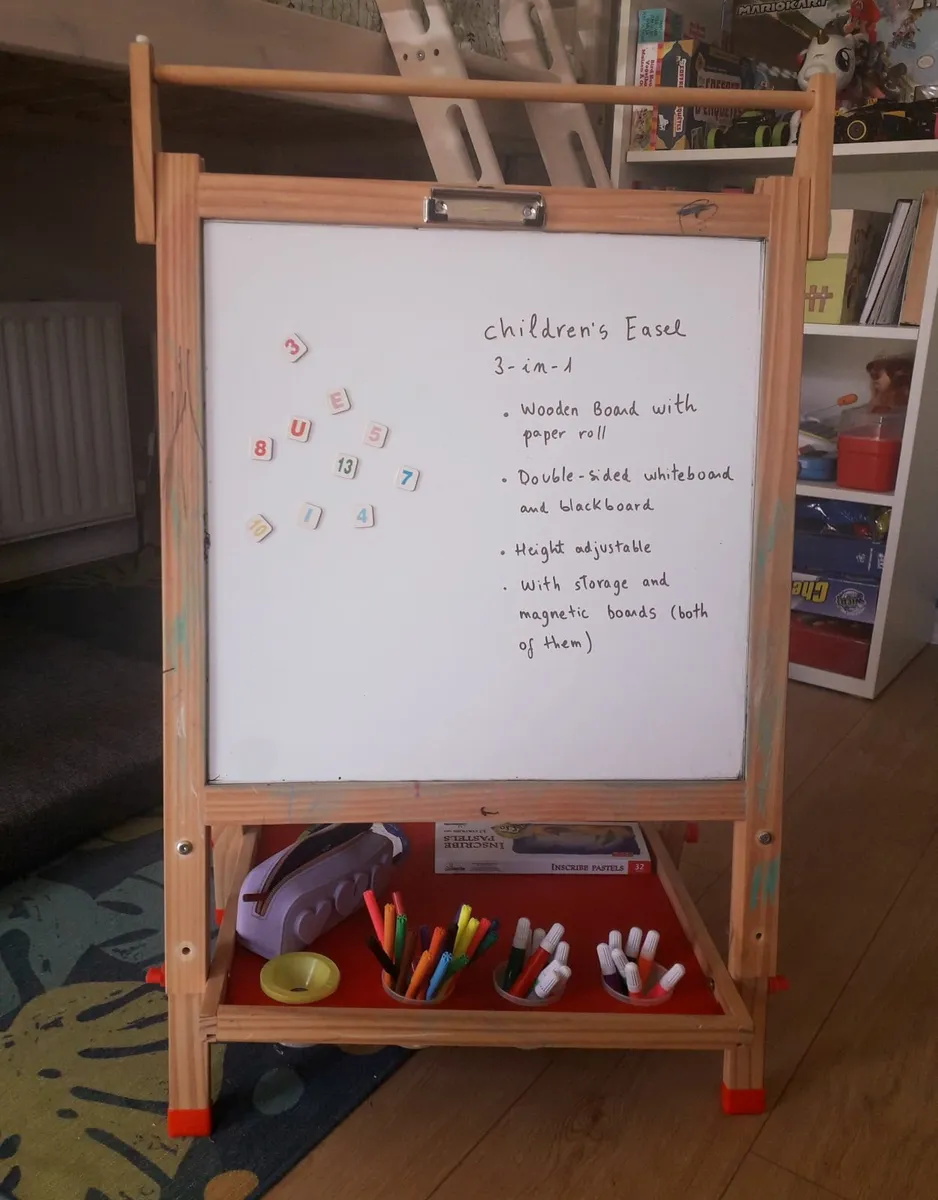 MARIOKART
children's Easel
3-in-1
• Wooden Board with
paper roll
• Double-sided whiteboard
and blackboard
• Height adjustable
• With storage and
magnetic boards (both
of them)
3
E
U
5
8
13
7
10
I
4
Che
INSCRIBE
PASTELS
INSCRIBE PASTELS 32